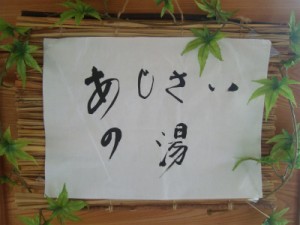 あじさい
の湯